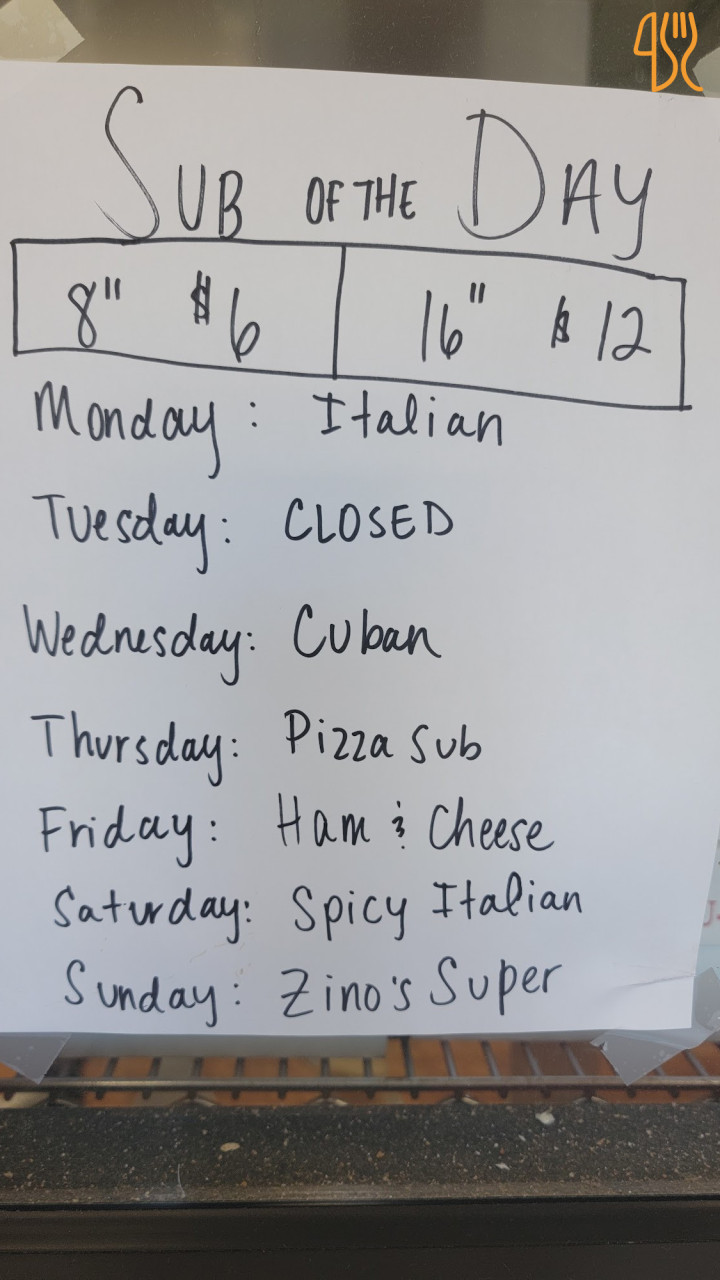 SUB OF THE DAY
8" $6 16" $12
Monday: Italian
Tuesday: CLOSED
Wednesday: Cuban
Thursday: Pizza Sub
Friday: Ham & Cheese
Saturday: Spicy Italian
Sunday: Zino's Super